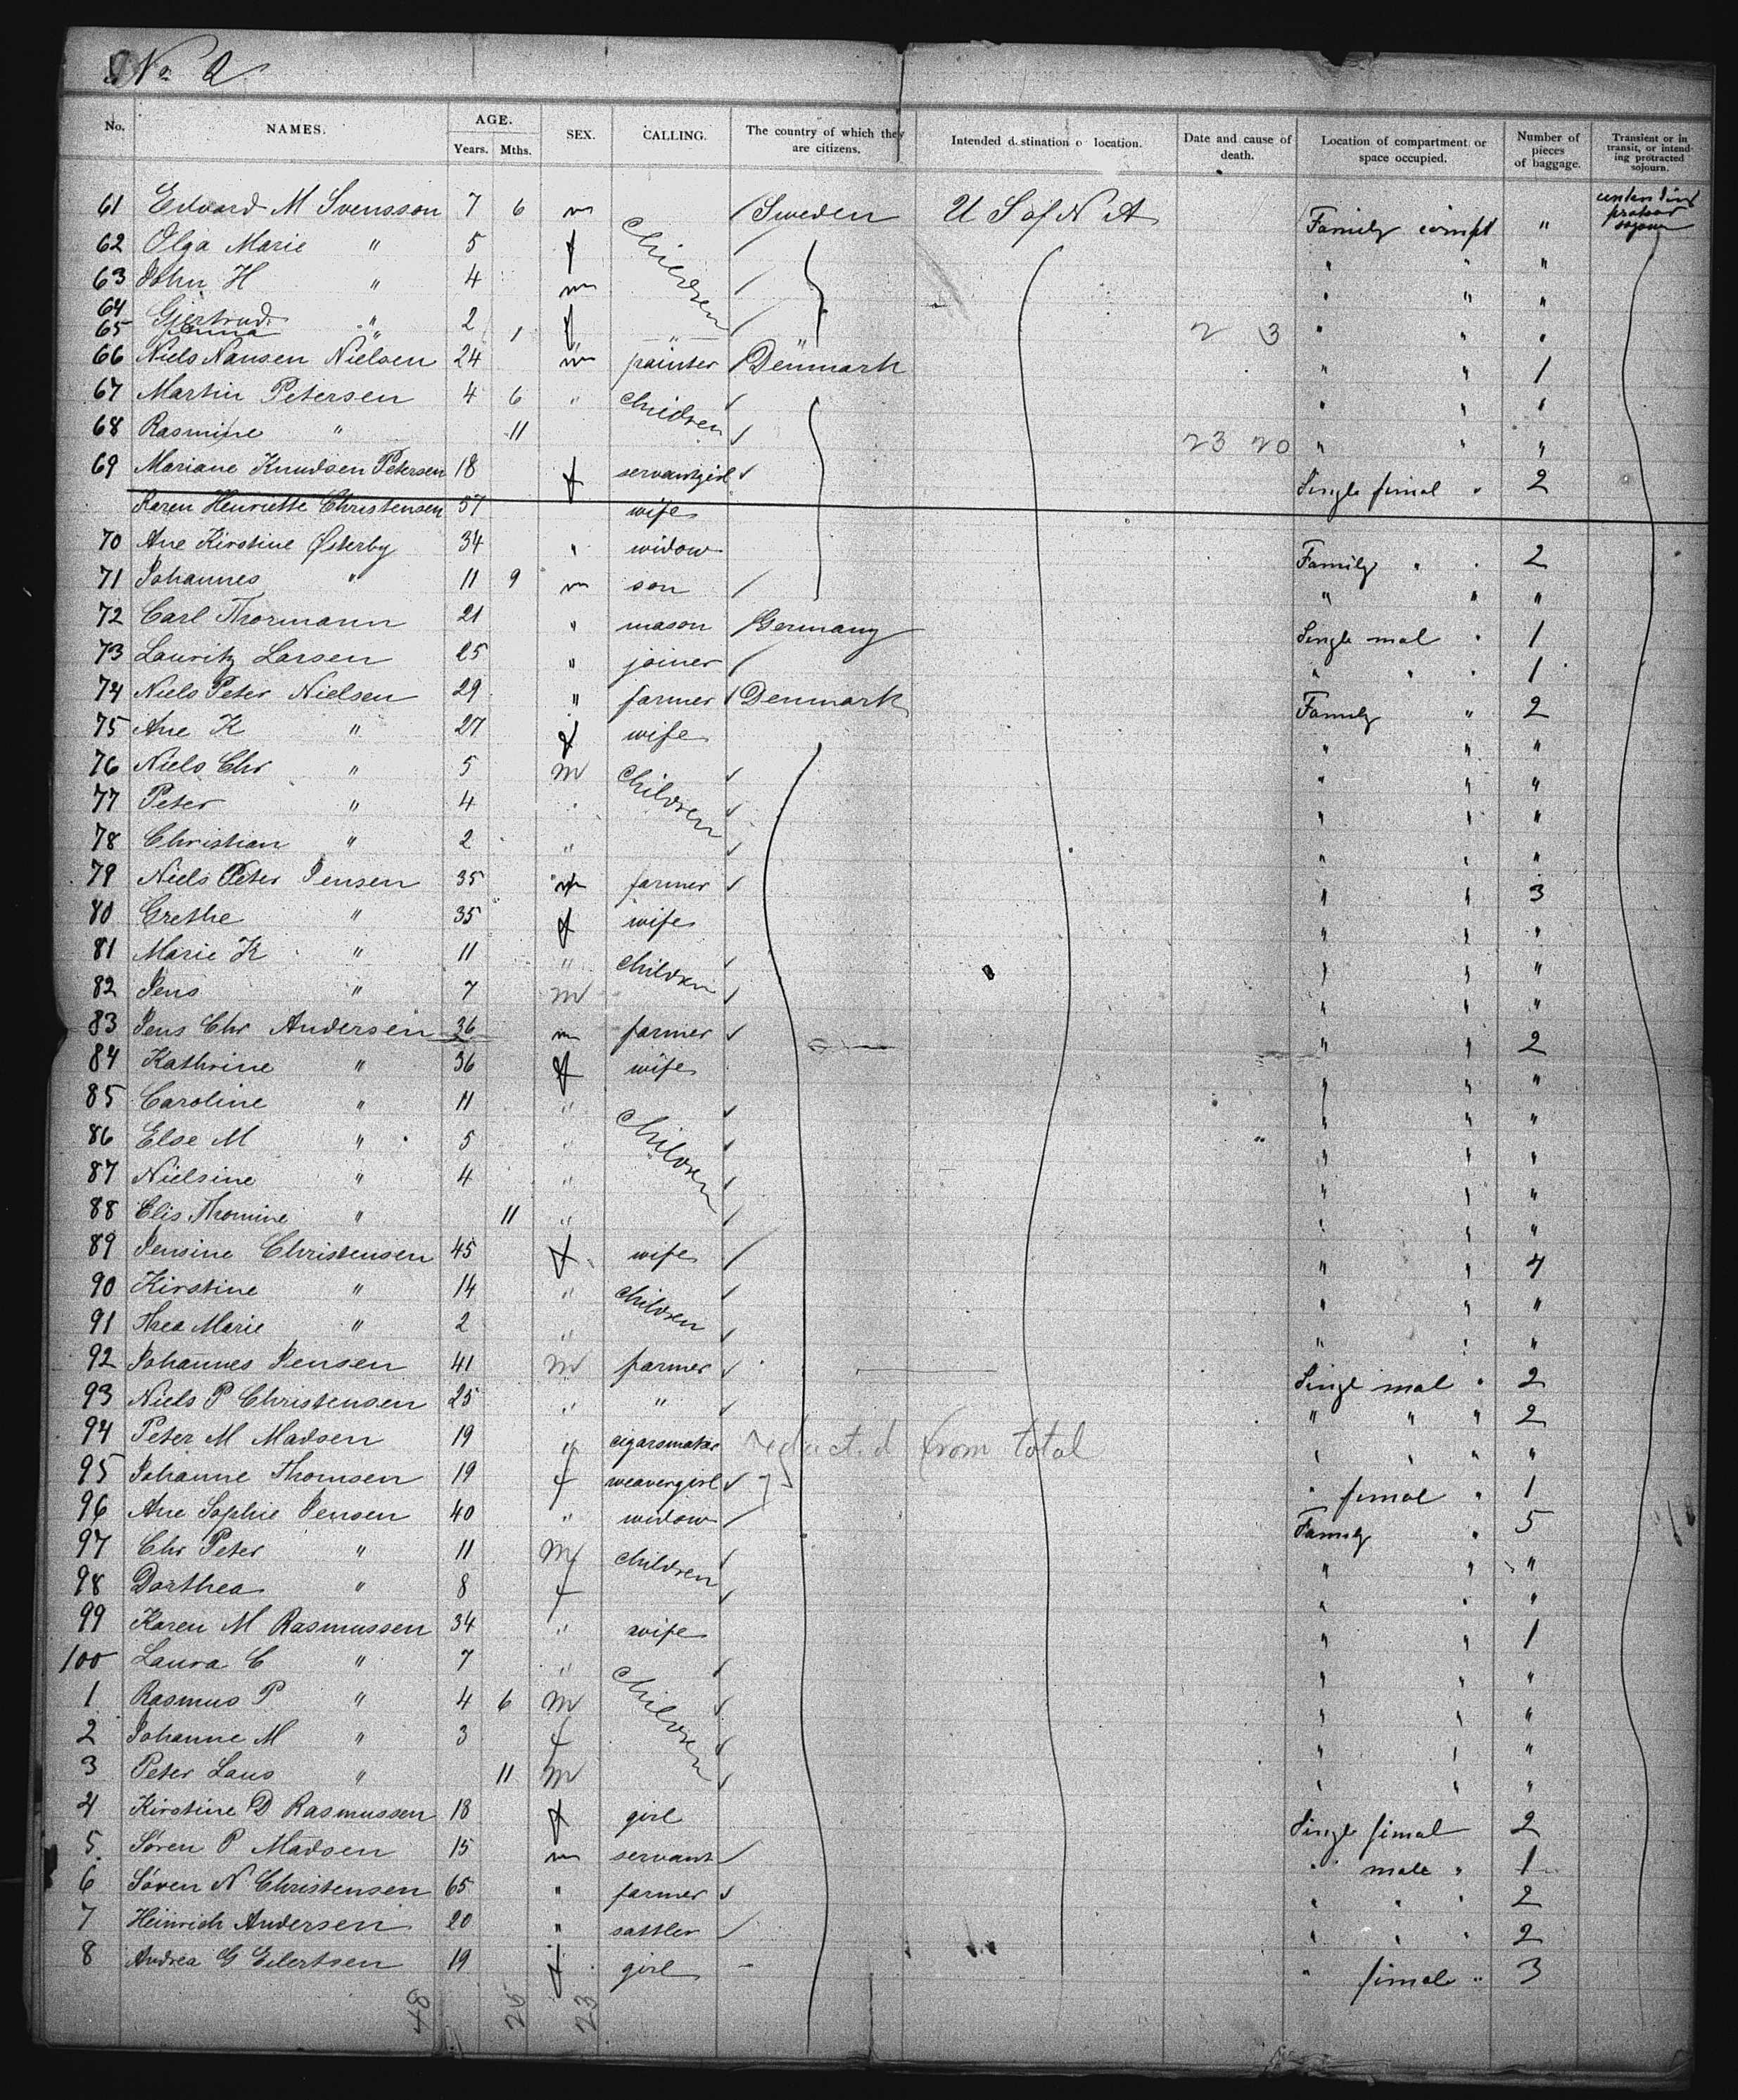 No 2
No. NAMES. AGE. Years. Mths. SEX. CALLING. The country of which they are citizens. Intended destination o location. Date and cause of death. Location of compartment or space occupied. Number of pieces of baggage. Transient or in transit, or intending protracted sojourn.
61 Edvard M Svensson 7 6 m / Sweden U S of N A Family compt "
62 Olga Marie " 5 f Children / " " "
63 John H " 4 m / " " "
64 Gjertrud " 2 f /
65 Anna " 1 " " 2 3 " " "
66 Niels Hansen Nielsen 24 m painter / Denmark " " 1
67 Martin Petersen 4 6 " Children ✓ " " 1
68 Rasmine " 11 ✓ 23 20 " " "
69 Mariane Knudsen Petersen 18 f servantgirl ✓ Single fimal " 2
Karen Henriette Christensen 57 wife
70 Ane Kirstine Østerby 34 " widow Family " " 2
71 Johannes " 11 9 m son / " " "
72 Carl Thormann 21 " mason / Germany Single mal " 1
73 Lauritz Larsen 25 " joiner / " " " 1
74 Niels Peter Nielsen 29 " farmer / Denmark Family " 2
75 Ane K " 27 f wife " " "
76 Niels Chr " 5 m Children ✓ " " "
77 Peter " 4 " ✓ " " "
78 Christian " 2 " ✓ " " "
79 Niels Peter Jensen 35 m farmer ✓ " " 3
80 Grethe " 35 f wife " " "
81 Marie K " 11 " Children ✓ " " "
82 Jens " 7 m ✓ " " "
83 Jens Chr Andersen 36 m farmer ✓ " " 2
84 Kathrine " 36 f wife " " "
85 Caroline " 11 " Children ✓ " " "
86 Else M " 5 " ✓ " " "
87 Nielsine " 4 " ✓ " " "
88 Elis Thomine " 11 " ✓ " " "
89 Jensine Christensen 45 f wife / " " 4
90 Kirstine " 14 " Children ✓ " " "
91 Thea Marie " 2 " ✓ " " "
92 Johannes Jensen 41 m farmer ✓ Singl mal " 2
93 Niels P Christensen 25 " " ✓ " " " 2
94 Peter M Madsen 19 " cigarsmaker deducted from total " " " "
95 Johanne Thomsen 19 f weavergirl ✓ " fimal " 1
96 Ane Sophie Jensen 40 " widow / Family " 5
97 Chr Peter " 11 m Children ✓ " " "
98 Dorthea " 8 f ✓ " " "
99 Karen M Rasmussen 34 " wife " " 1
100 Laura C " 7 " Children ✓ " " "
1 Rasmus P " 4 6 m ✓ " " "
2 Johanne M " 3 f ✓ " " "
3 Peter Laus " 11 m ✓ " " "
4 Kirstine D Rasmussen 18 f girl Single fimal 2
5 Søren P Madsen 15 m servant / " male " 1
6 Søren N Christensen 65 " farmer ✓ " " " 2
7 Heinrich Andersen 20 " sattler / " " " 2
8 Andrea G Eilertsen 19 f girl - " fimal " 3
48 25 23